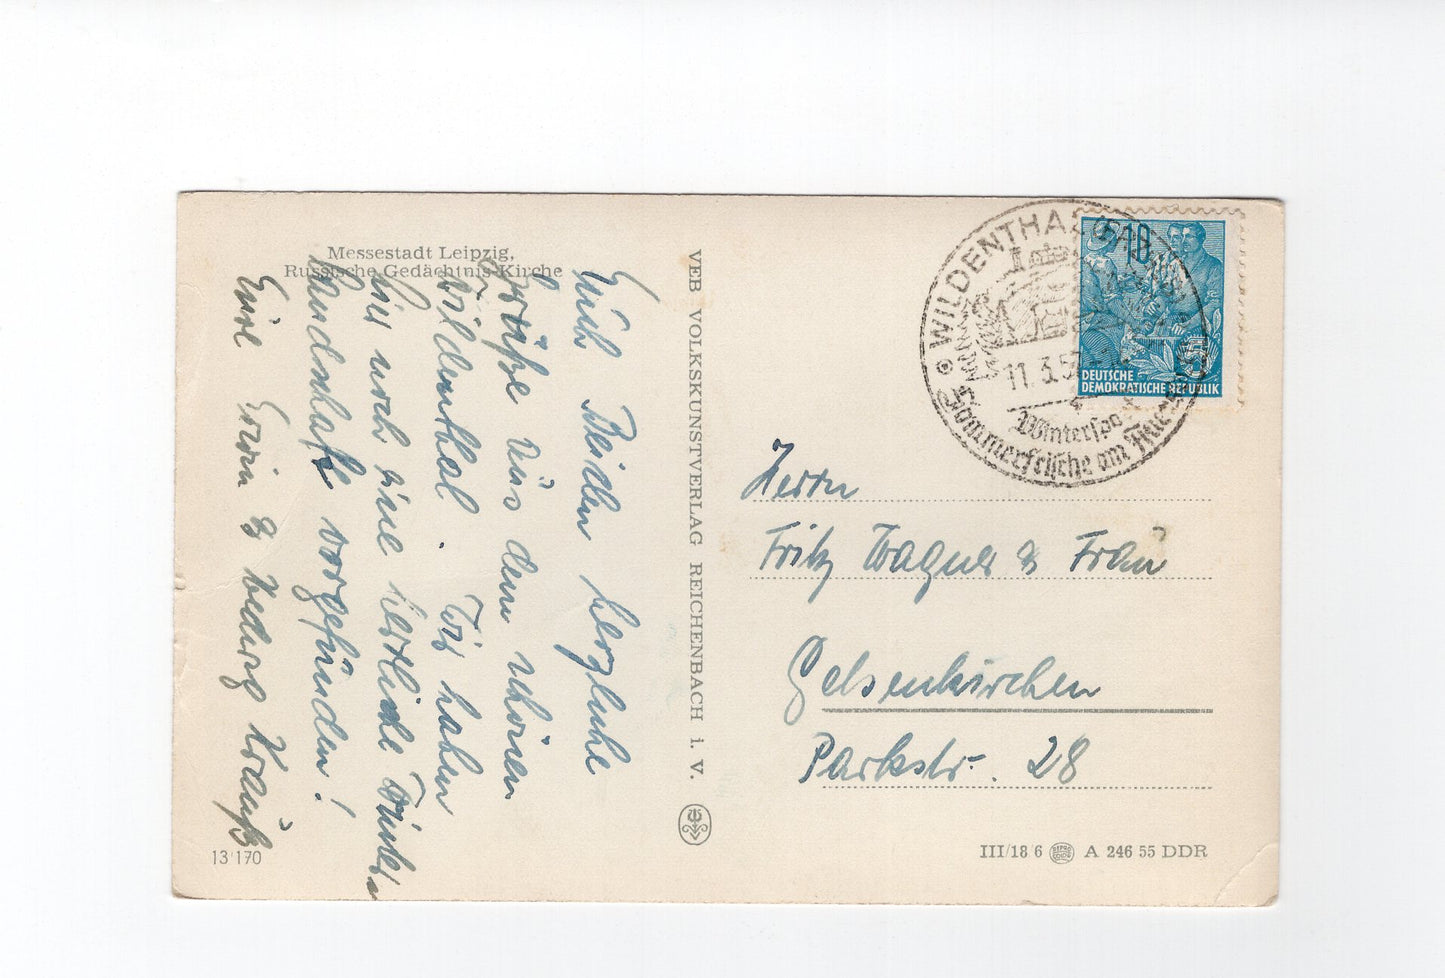 Messestadt Leipzig,
Russische Gedächtnis-Kirche
Euch Beiden herzliche
Grüße aus dem schönen
Wildenthal. Wir haben
hier noch eine herrliche Winter-
landschaft vorgefunden!
Eure Erwin & Hedwig Krauß
13 170
VEB VOLKSKUNSTVERLAG REICHENBACH i. V.
WILDENTHAL
11. 3. 57
Wintersport
Sommerfrische am Auersberg
10
5
DEUTSCHE
DEMOKRATISCHE REPUBLIK
Herrn
Fritz Wagner & Frau
Gelsenkirchen
Parkstr. 28
III/18 6 A 246 55 DDR